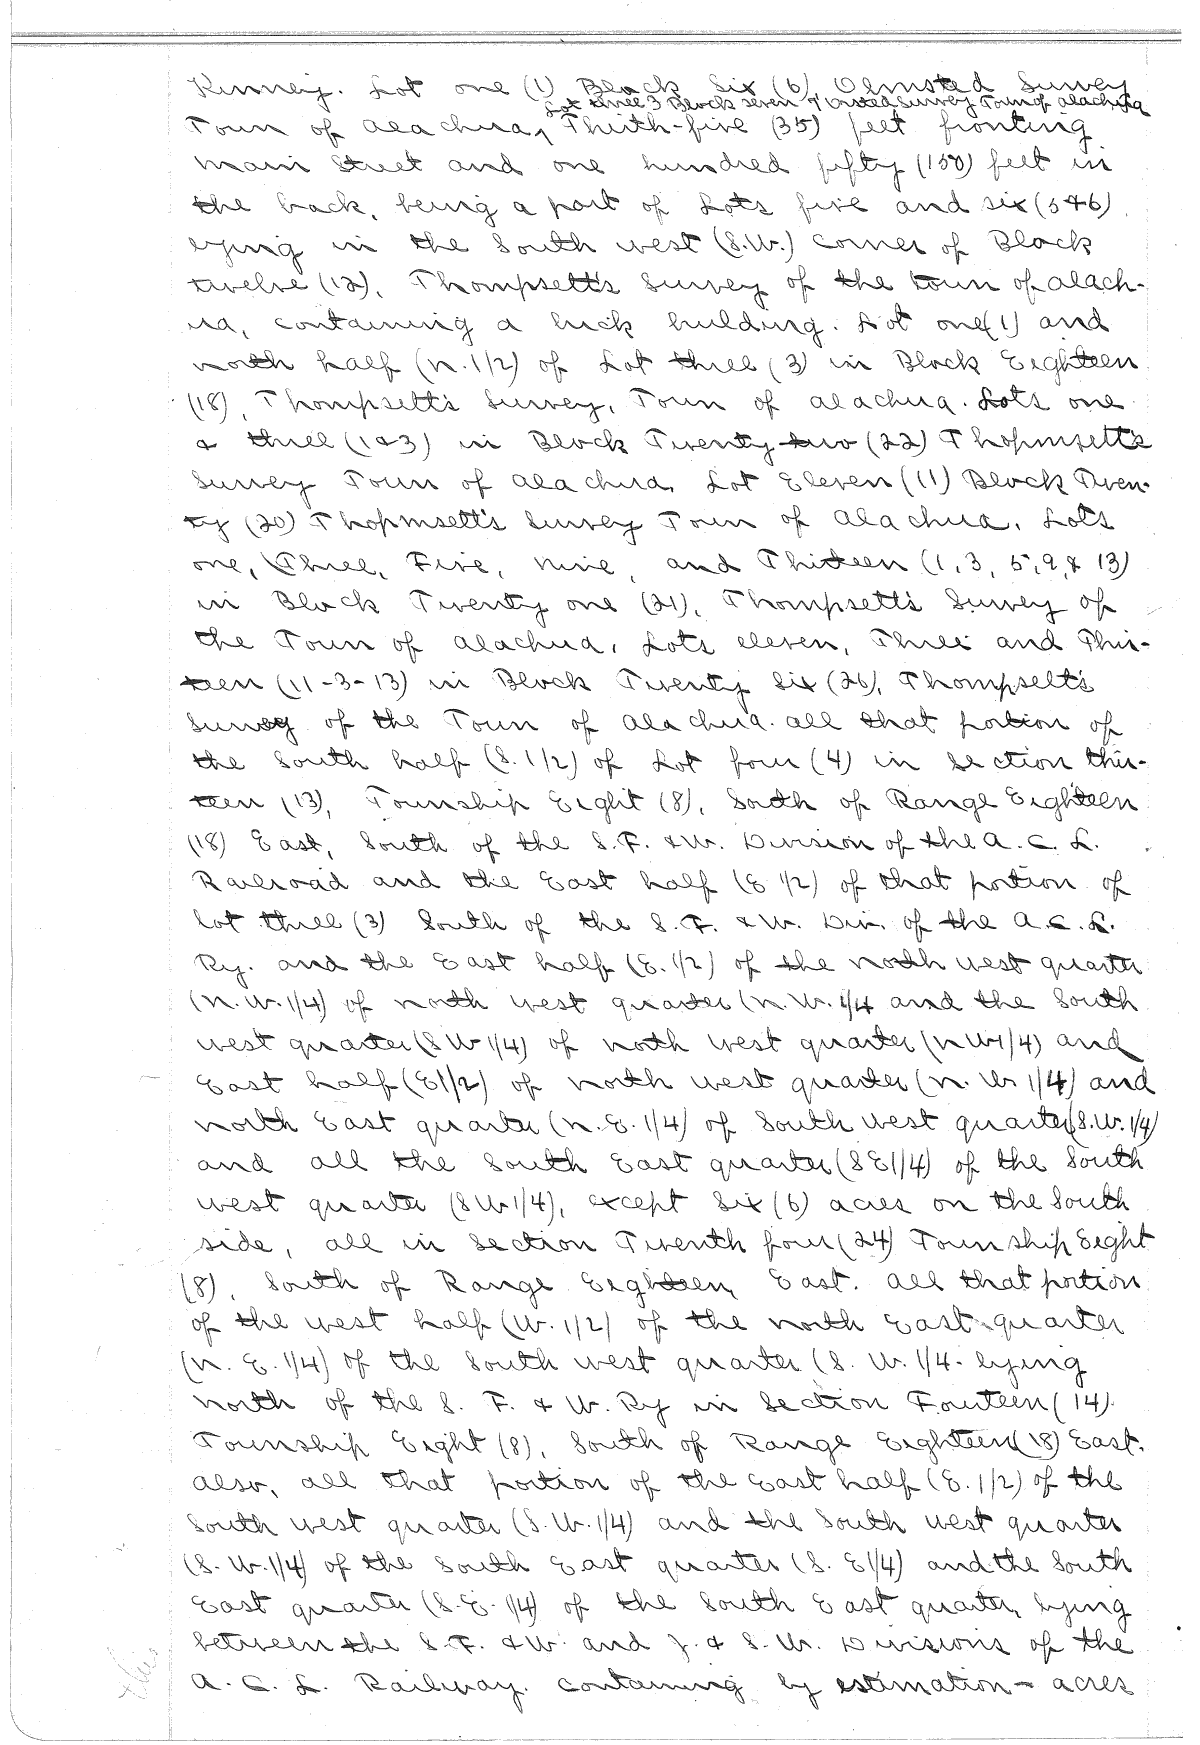 Kinney. Lot one (1) Block Six (6) Olmsted Survey
Lot three 3 Block seven 7 Olmsted Survey Town of Alachua
Town of Alachua, Thirth-five (35) feet fronting
Main Street and one hundred fifty (150) feet in
the back, being a part of Lots five and six (5 & 6)
lying in the South west (S.W.) corner of Block
twelve (12), Thompsett's Survey of the Town of Alach-
ua, containing a brick building. Lot one (1) and
north half (N. 1/2) of Lot three (3) in Block Eighteen
(18), Thompsett's Survey, Town of Alachua. Lots one
& three (1 & 3) in Block Twenty two (22) Thopmsett's
Survey Town of Alachua. Lot Eleven (11) Block Twen-
ty (20) Thopmsett's Survey Town of Alachua. Lots
one, Three, Five, nine, and Thirteen (1, 3, 5, 9, & 13)
in Block Twenty one (21), Thompsett's Survey of
the Town of Alachua, Lots eleven, Three and Thir-
teen (11-3-13) in Block Twenty Six (26), Thompsett's
Survey of the Town of Alachua. All that portion of
the South half (S. 1/2) of Lot four (4) in Section thir-
teen (13), Township Eight (8), South of Range Eighteen
(18) East, South of the S. F. & W. Division of the A. C. L.
Railroad and the East half (E 1/2) of that portion of
Lot three (3) South of the S. F. & W. Div. of the A. C. L.
Ry. and the East half (E. 1/2) of the north west quarter
(N. W. 1/4) of north west quarter (N. W. 1/4 and the South
west quarter (S W 1/4) of north west quarter (N W 1/4) and
East half (E 1/2) of north west quarter (N. W 1/4) and
north East quarter (N. E. 1/4) of South west quarter (S. W. 1/4)
and all the South East quarter (S E 1/4) of the South
west quarter (S W 1/4), except six (6) acres on the South
side, all in Section Twenth four (24) Township Eight
(8), South of Range Eighteen East. All that portion
of the west half (W. 1/2) of the north East quarter
(N. E. 1/4) of the South west quarter (S. W. 1/4 lying
north of the S. F. & W. Ry in Section Fourteen (14)
Township Eight (8), South of Range Eighteen (18) East.
Also, all that portion of the East half (E. 1/2) of the
South west quarter (S. W. 1/4) and the South west quarter
(S. W. 1/4) of the South East quarter (S. E 1/4) and the South
East quarter (S. E. 1/4) of the South East quarter, lying
between the S. F. & W. and J. & S. W. Divisions of the
A. C. L. Railway. Containing by estimation — acres